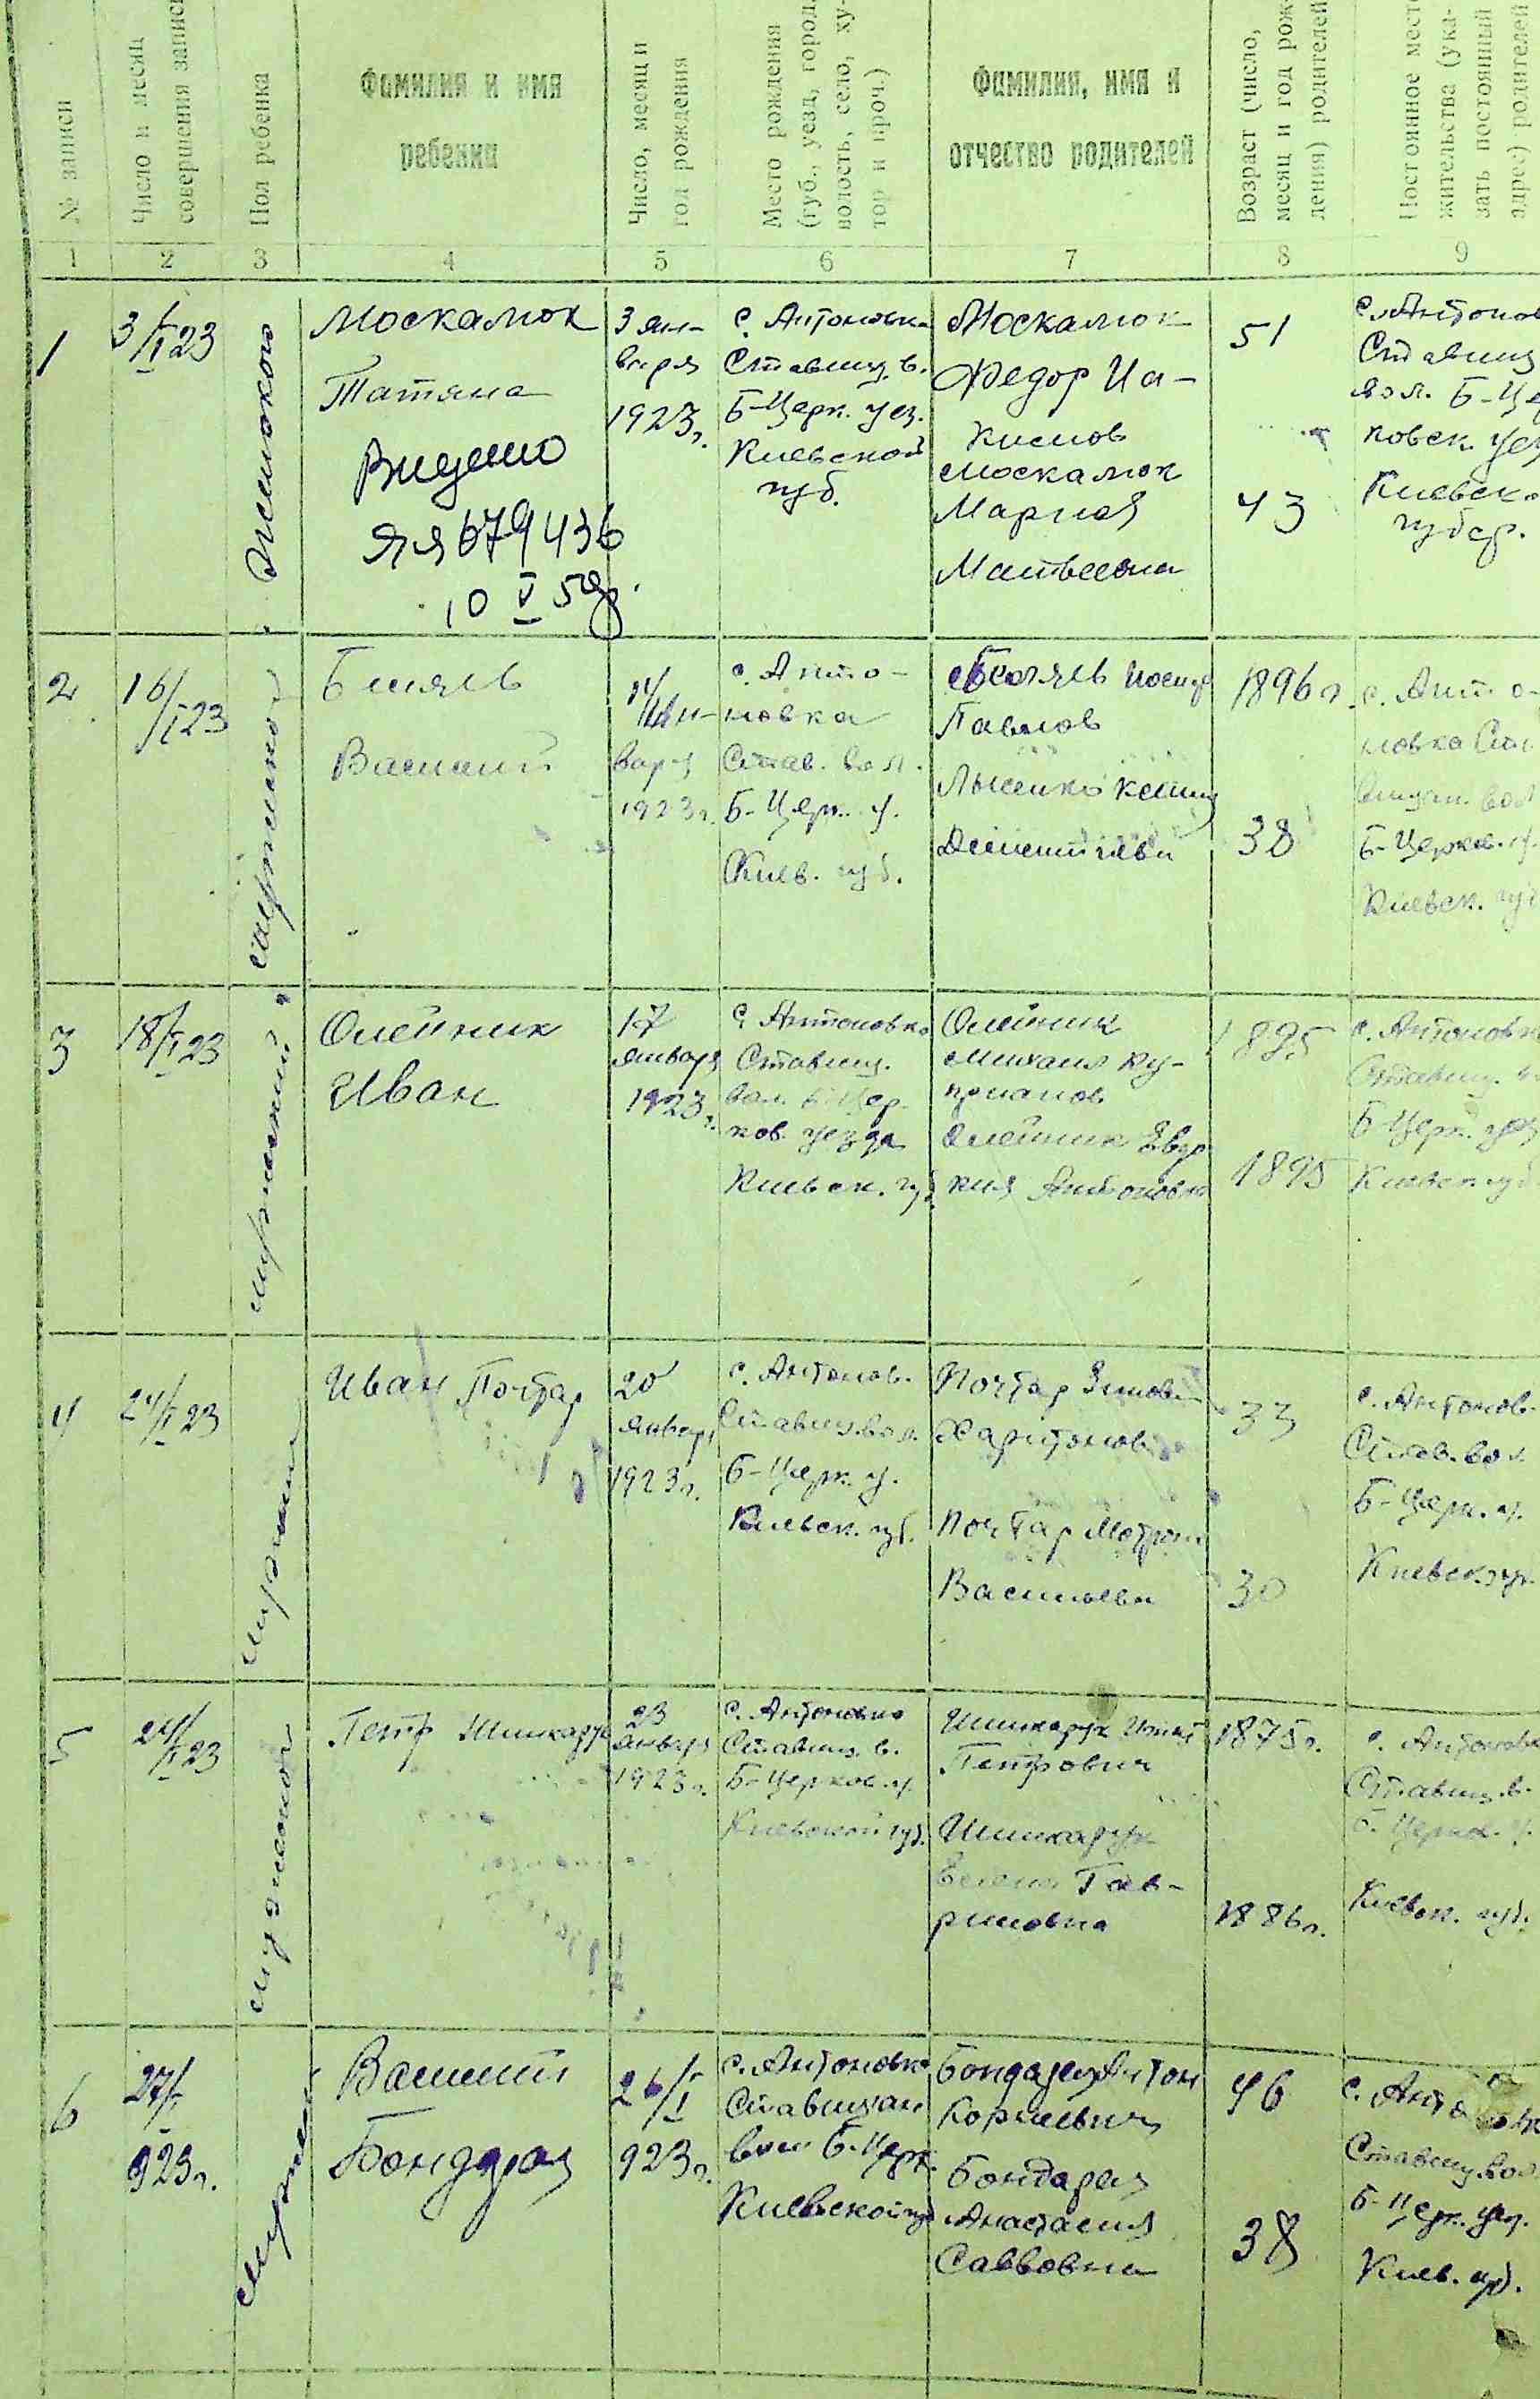 № записи
Число и месяц
совершения запис
Пол ребенка
Фамилия и имя
ребенка
Число, месяц и
год рождения
Место рождения
(губ., уезд, город,
волость, село, ху-
тор и проч.)
Фамилия, имя и
отчество родителей
Возраст (число,
месяц и год рож-
дения) родителей
Постоянное мест
жительства (ука-
зать постоянный
адрес) родителей
1 2 3 4 5 6 7 8 9
1
3/I 23
Москалюк
Татяна
Видено
10 V 52г.
3 ян-
варя
1923г.
с. Антоновка
Ставищ. в.
Б-Церк. уез.
Киевской
губ.
Москалюк
Федор Иа-
кимов
Москалюк
Мария
Матвеевна
51
43
с. Антонов
Ставищ
вол. Б-Це
ковск. уез
Киевско
губер.
2
16/I 23
Василий
варя
1923г.
с. Анто-
новка
Став. вол.
Б-Церк. у.
Киев. губ.
Павлов
Лысенко
1896г.
38
с. Анто-
новка
вол
Б-Церков. у.
Киевск. губ
3
18/I 23
мужеский
Олейник
Иван
17
января
1923г.
с Антоновка
Ставищ.
вол. Б-Цер.
ков. уезда
Киевск. губ.
Олейник
Михаил Ку-
прианов
Олейник Евдо
кия Антоновна
1895
1895
с. Антоновка
Ставищ.
Б-Церк. уез
Киевск. губ
4
24/I 23
Иван Почтар
20
январ
1923г.
с. Антонов.
Ставищ. вол.
Б-Церк. у.
Киевск. губ.
Почтар Зинов
Харитонов
Почтар Мотрона
Васильевн
33
30
с. Антонов.
Став. вол.
Б-Церк. у.
Киевск. губ.
5
24/I 23
мужской
Петр Шинкарук
23
января
1923г.
с. Антоновка
Ставищ. в.
Б-Церков. у.
Киевской губ.
Шинкарук Игнат
Петрович
Шинкарук
Елена Гав-
риловна
1875г.
1886г.
с. Антоновк
Ставищ. в.
Б. Церков. у.
Киевск. губ.
6
27/I
923г.
Василий
Бондарая
26/I
923г.
с. Антоновка
Ставищан
вол Б. Церк.
Киевской губ
Бондарая Антон
Корнеевич
Бондарая
Анастасия
Саввовна
46
38
с. Антоновк
Ставищ. вол
Б-Церк. уез.
Киев. губ.